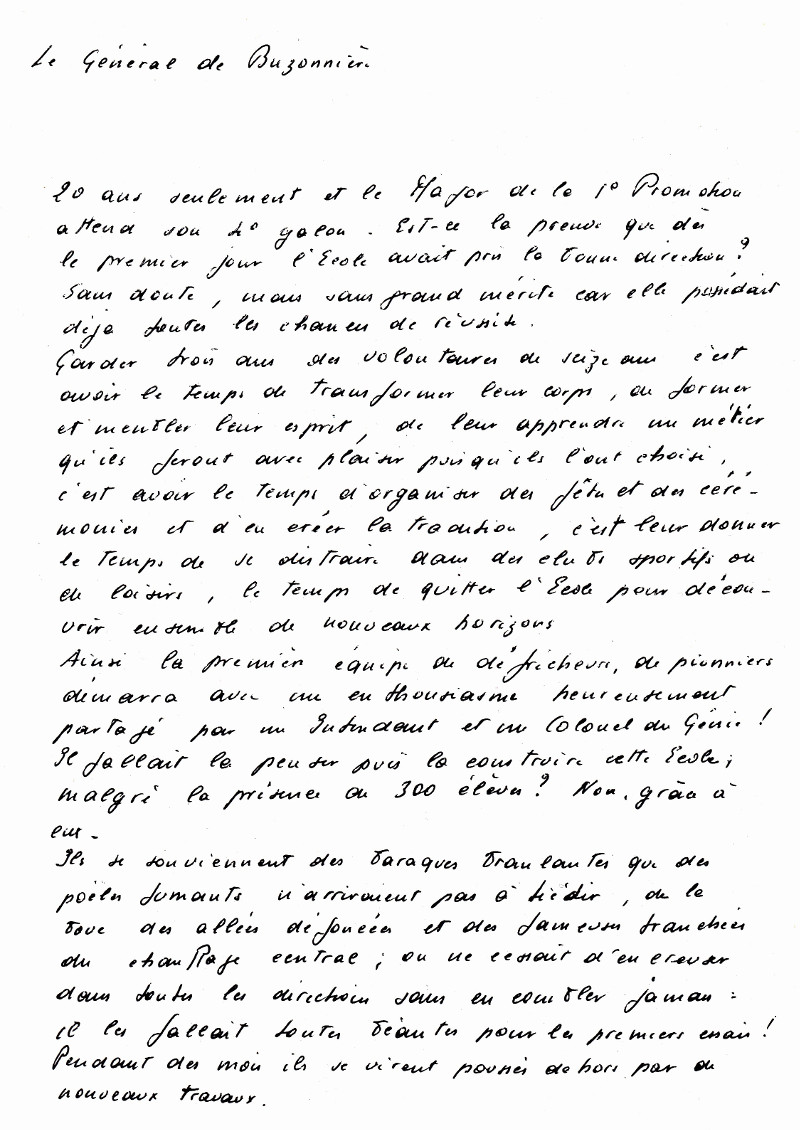 Le Général de Buzonnière
20 ans seulement et le Major de la 1° Promotion
attend son 4° galon. Est-ce la preuve que dès
le premier jour l'Ecole avait pris la bonne direction ?
Sans doute, mais sans grand mérite car elle possédait
déjà toutes les chances de réussite.
Garder trois ans des volontaires de seize ans c'est
avoir le temps de transformer leur corps, de former
et meubler leur esprit, de leur apprendre un métier
qu'ils feront avec plaisir puisqu'ils l'ont choisi,
c'est avoir le temps d'organiser des fêtes et des céré-
monies et d'en créer la tradition, c'est leur donner
le temps de se distraire dans des clubs sportifs ou
de loisirs, le temps de quitter l'Ecole pour décou-
vrir ensemble de nouveaux horizons
Ainsi la première équipe de défricheurs, de pionniers
démarra avec un enthousiasme heureusement
partagé par un Intendant et un Colonel du Génie !
Il fallait la penser puis la construire cette Ecole ;
malgré la présence de 300 élèves ? Non, grâce à
eux.
Ils se souviennent des baraques branlantes que des
poêles fumants n'arrivaient pas à tiédir, de la
boue des allées défoncées et des fameuses tranchées
du chauffage central ; on ne cessait d'en creuser
dans toutes les directions sans en combler jamais :
il les fallait toutes béantes pour les premiers essais !
Pendant des mois ils se virent poussés dehors par de
nouveaux travaux.